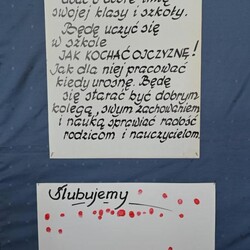 dbać o dobre imię
swojej klasy i szkoły.
Będę uczyć się
w szkole
JAK KOCHAĆ OJCZYZNĘ!
Jak dla niej pracować
kiedy urosnę. Będę
się starać być dobrym
kolegą, swym zachowaniem
i nauką sprawiać radość
rodzicom i nauczycielom.
Ślubujemy